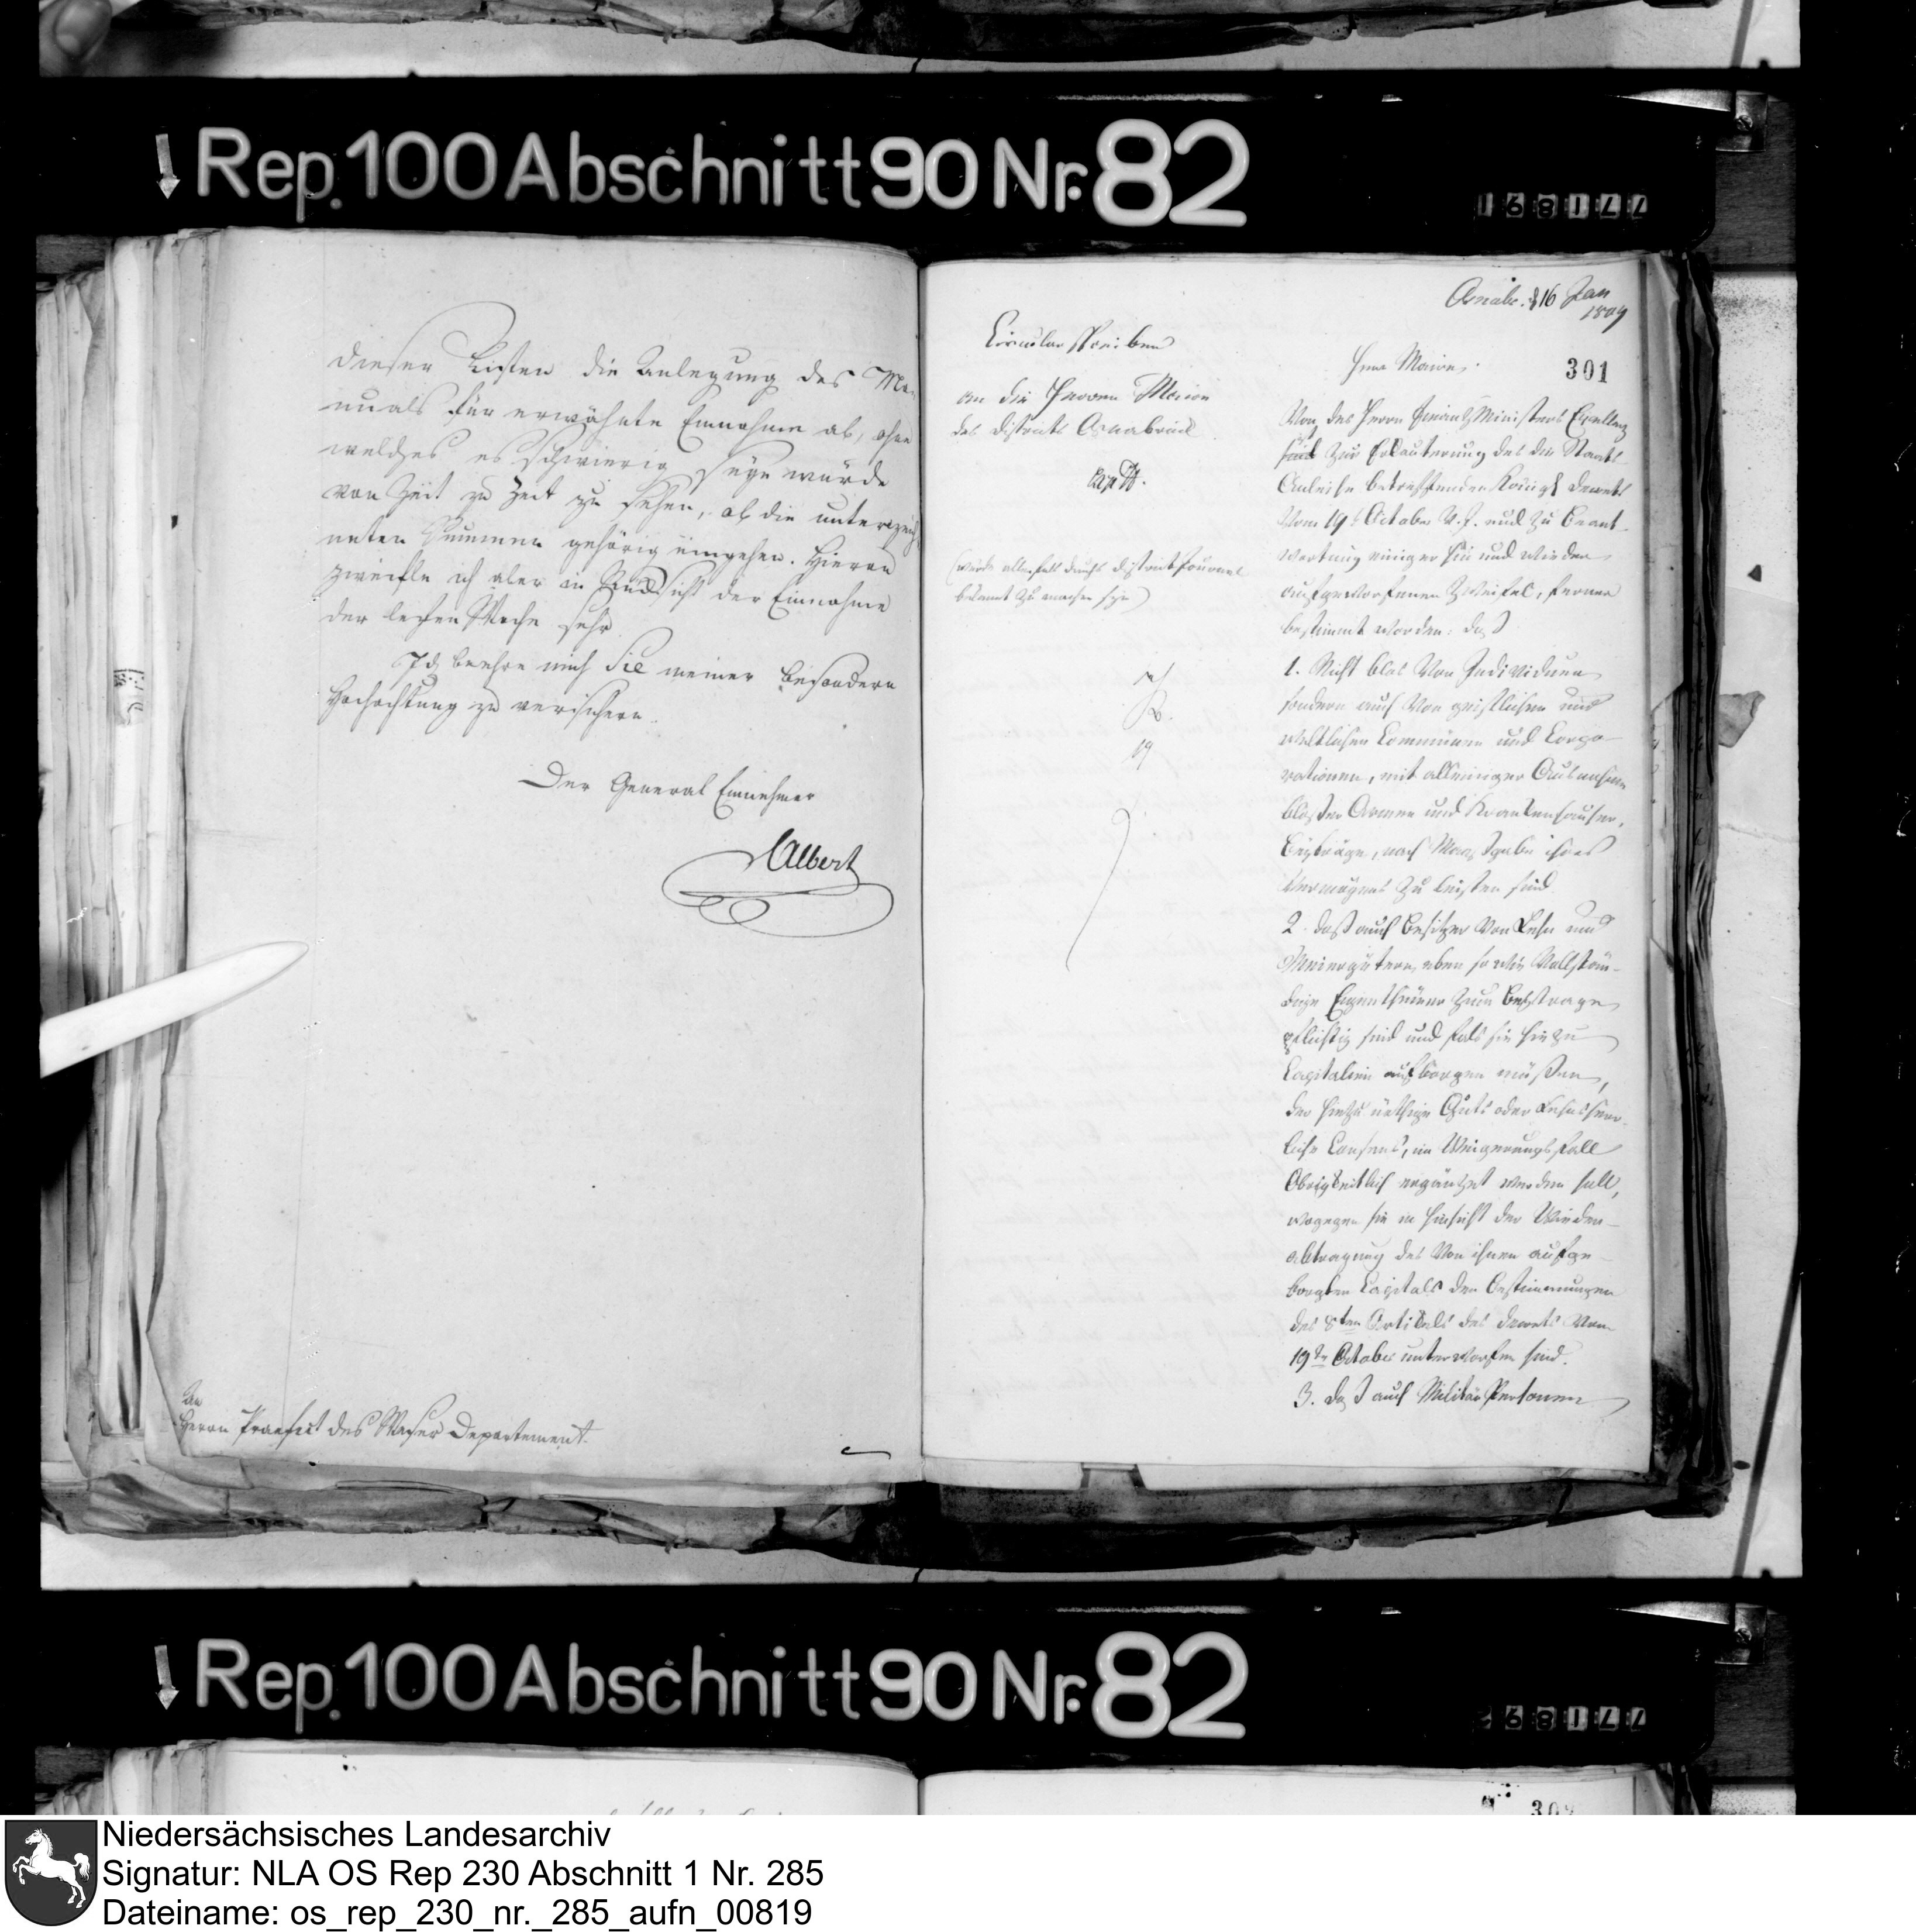 Rep. 100 Abschnitt 90 Nr. 82
168177
dieser Listen die Anlegung des Ma-
nuals für erwähnte Einnahme ab, ohne
welches es schwierig seyn würde
von Zeit zu Zeit zu sehen, ob die unterzeich-
neten Summen gehörig eingehen. Hieran
zweifle ich aber in Rücksicht der Einnahme
der letzten Woche sehr.
Ich beehre mich Sie meiner besondern
Hochachtung zu versichern.
Der General Einnehmer
Albert
An
Herrn Praefect des Weser Departement.
Osnabr. d 16 Jan
1809
301
Circularschreiben
an die Herren Maires
des Districts Osnabrück
(würde allenfalls durchs Districts Journal
bekannt zu machen seyn)
19
Herr Maire.
Von des Herrn Finanz Ministers Excellenz
sind zur Erläuterung des die Staats-
Anleihe betreffenden Königl Decrets
vom 19t October v. J. und zu Beant-
wortung einiger hin und wieder
aufgeworfenen Zweifel, ferner
bestimmt worden: daß
1. Nicht blos von Individuen
sondern auch von geistlichen und
weltlichen Communen und Corpo-
rationen, mit alleiniger Ausnahme
bloßer Armen und Krankenhäuser,
Beyträge, nach Maasgabe ihres
Vermögens zu leisten sind.
2. daß auch Besitzer von Lehn und
Meiergütern, eben so wie Vollstän-
dige Eigenthümer zum Beytrage
pflichtig sind und falls sie hiezu
Capitalien aufborgen müßen,
der hiezu nöthige Guts oder Lehnsherr-
liche Consens, im Weigerungsfall
Obrigkeitlich ergänzet werden soll,
wogegen sie in Hinsicht der Wieder-
abtragung des von ihnen aufge-
borgten Capitals den Bestimmungen
des 8ten Artikels des Decrets vom
19ten October unterworfen sind.
3. daß auch Militär Personen
Rep. 100 Abschnitt 90 Nr. 82
68177
302
Niedersächsisches Landesarchiv
Signatur: NLA OS Rep 230 Abschnitt 1 Nr. 285
Dateiname: os_rep_230_nr._285_aufn_00819